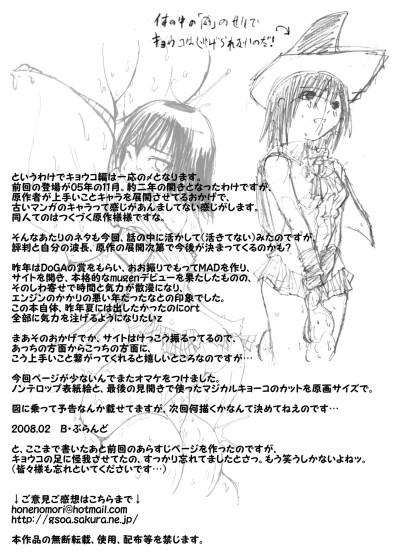 体の中の「石」のせいで
キョウコは逃げられないのだ!
というわけでキョウコ編は一応の〆となります。
前回の登場が05年の11月。約二年の開きとなったわけですが、
原作者が上手いことキャラを展開させてるおかげで、
古いマンガのキャラって感じがあんましてない感じがします。
同人てのはつくづく原作様様ですな。
そんなあたりのネタも今回、話の中に活かして(活きてない)みたのですが
評判と自分の波長、原作の展開次第で今後が決まってくるのかも?
昨年はDoGAの賞をもらい、おお振りでもってMADを作り、
サイトを開き、本格的なmugenデビューを果たしたものの、
そのしわ寄せで時間と気力が散漫になり、
エンジンのかかりの悪い年だったなとの印象でした。
この本自体、昨年夏には出したかったのにort
全部に気力を注げるようになりたいz
まあそのおかげでか、サイトはけっこう振るってるので、
あっちの方面からこっちの方面に、
こう上手いこと繋がってくれると嬉しいところなのですが…
今回ページが少ないんでまたオマケをつけました。
ノンテロップ表紙絵と、最後の見開きで使ったマジカルキョーコのカットを原画サイズで。
図に乗って予告なんか載せてますが、次回何描くかなんて決めてねえのです…
2008.02 B・ぶらんど
と、ここまで書いたあと前回のあらすじページを作ったのですが、
キョウコの足に怪我させてたの、すっかり忘れてましたとさっ。もう笑うしかないよねッ。
(皆々様も忘れといてくださいです…)
↓ご意見ご感想はこちらまで↓
honenomori@hotmail.com
http://gsoa.sakura.ne.jp/
本作品の無断転載、使用、配布等を禁じます。